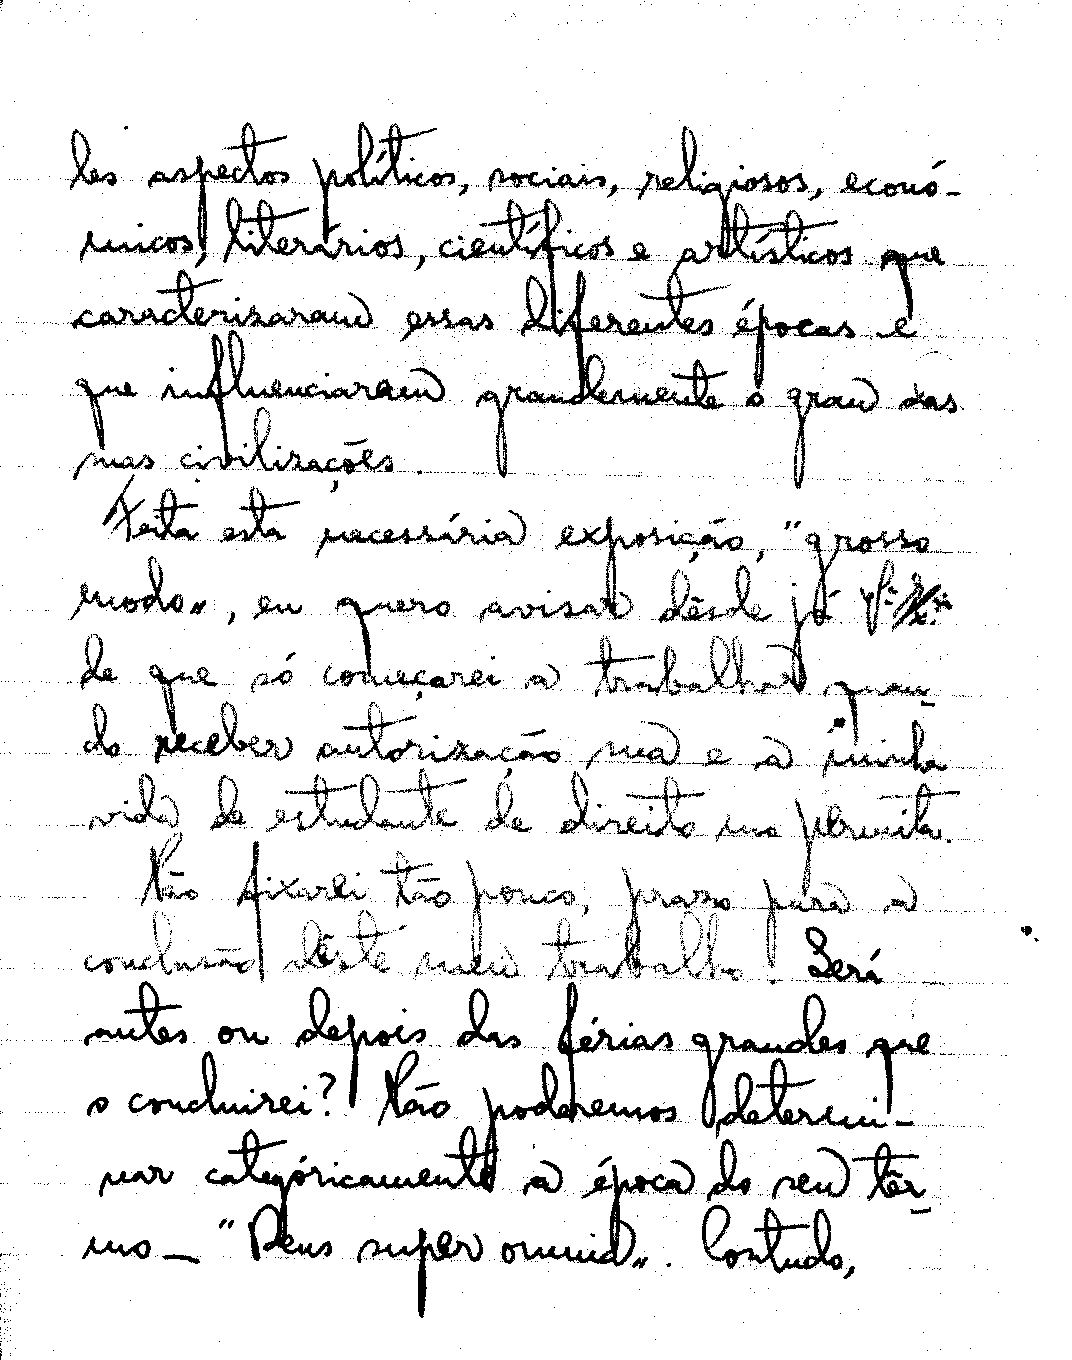 les aspectos políticos, sociais, religiosos, econó-
micos, literários, científicos e artísticos que
caracterizaram essas diferentes épocas e
que influenciaram grandemente o grau das
suas civilizações.
Feita esta necessária exposição, "grosso
modo", eu quero avisar dêsde já
de que só começarei a trabalhar quan-
do receber autorização sua e a minha
vida de estudante de direito mo permita.
Não fixarei tão pouco, prazo para a
conclusão dêste meu trabalho. Será
antes ou depois das férias grandes que
o concluirei? Não poderemos determi-
nar categóricamente a época do seu têr-
mo — "Deus super omnia". Contudo,